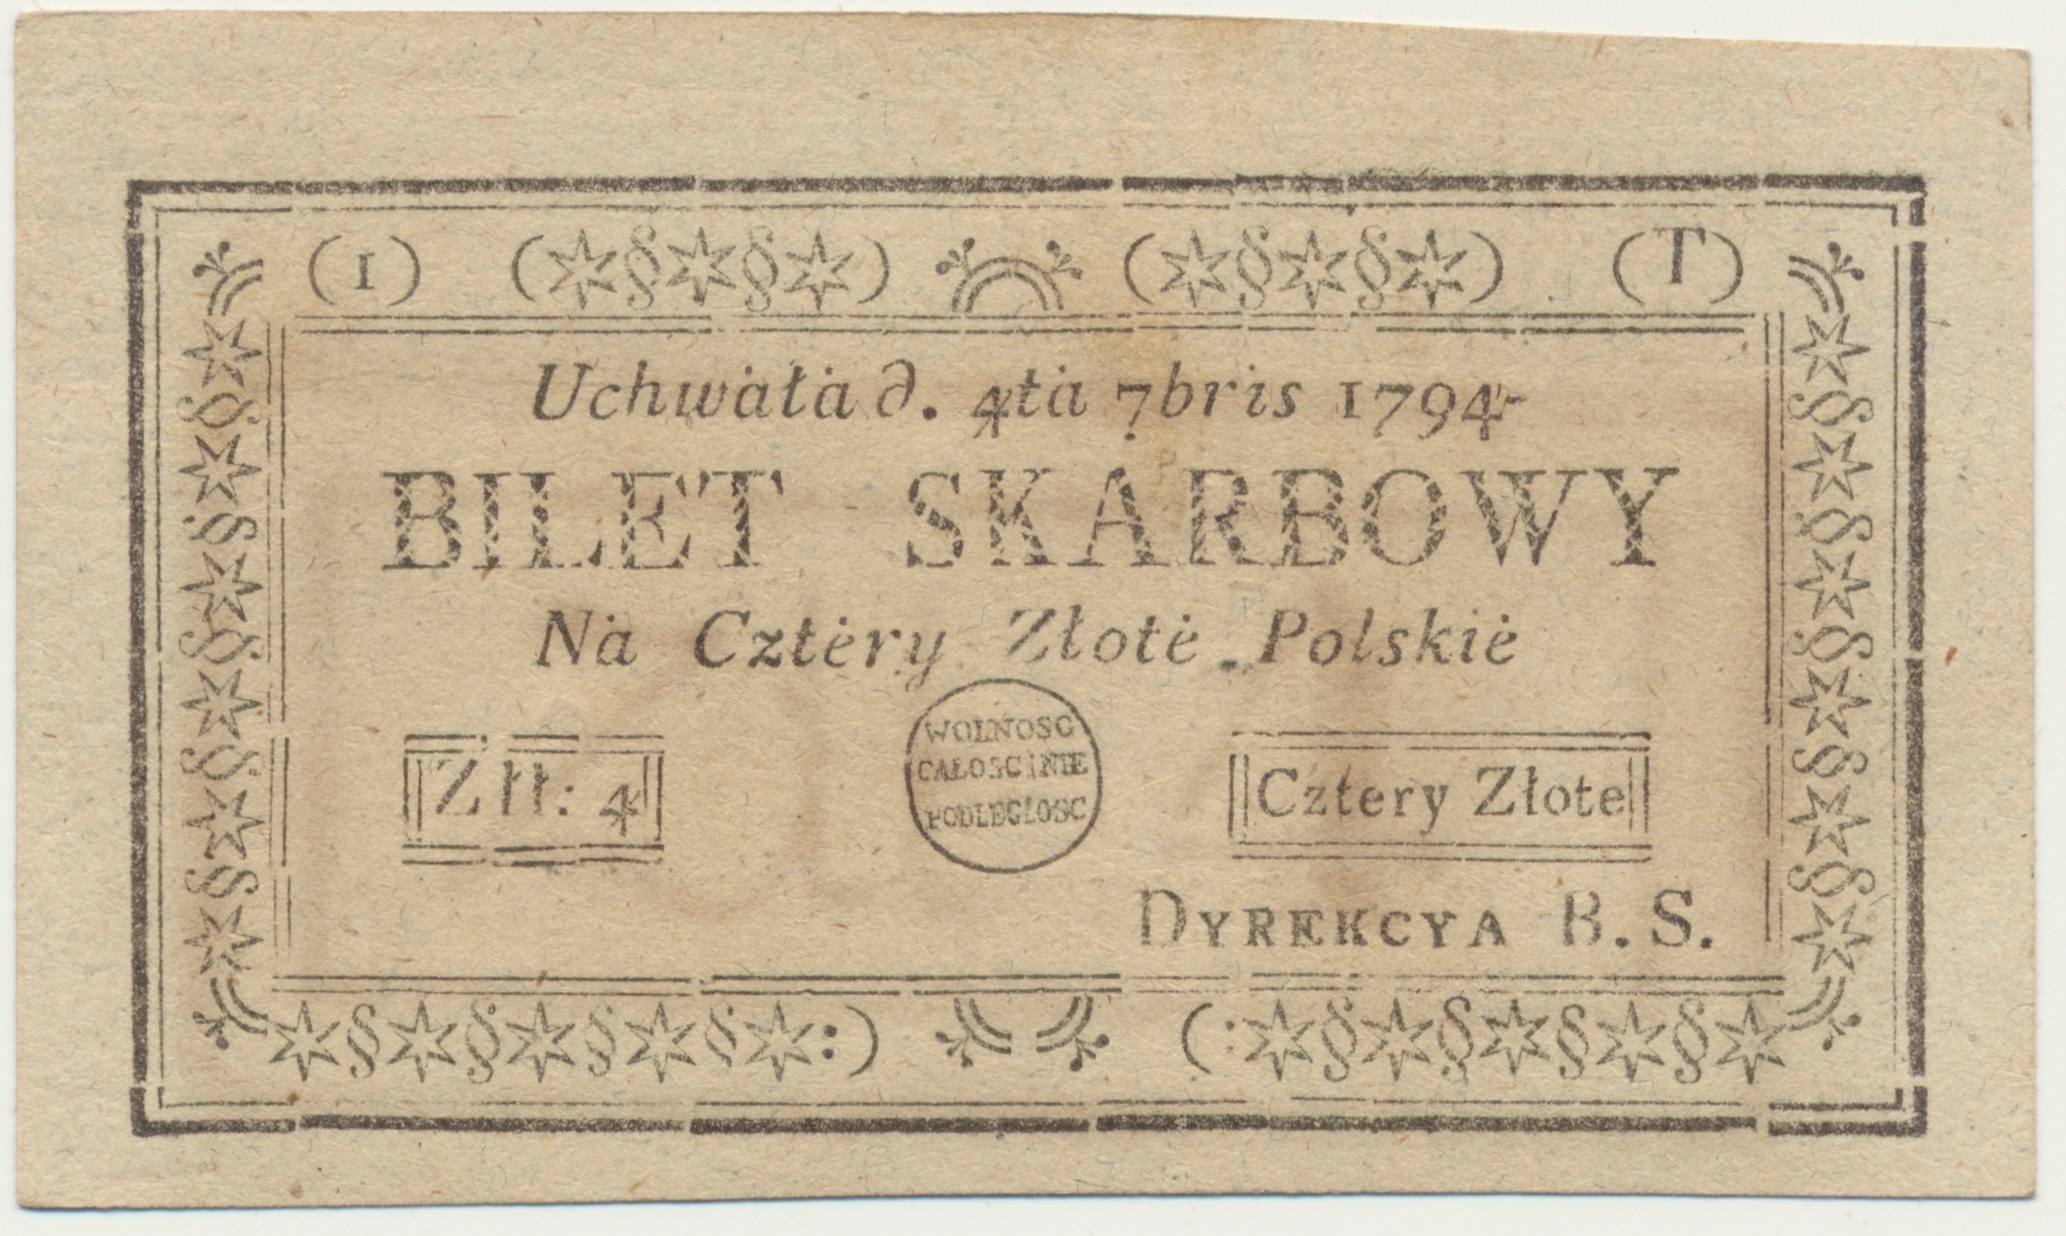 (1) (T)
Uchwȧłȧ d. 4tȧ 7bris 1794
BILET SKARBOWY
Nȧ Cztėry Złotė Polskiė
Złł: 4
WOLNOSC
CAŁOSC i NIE
PODLEGŁOSC
Cztery Złote
DYREKCYA B. S.